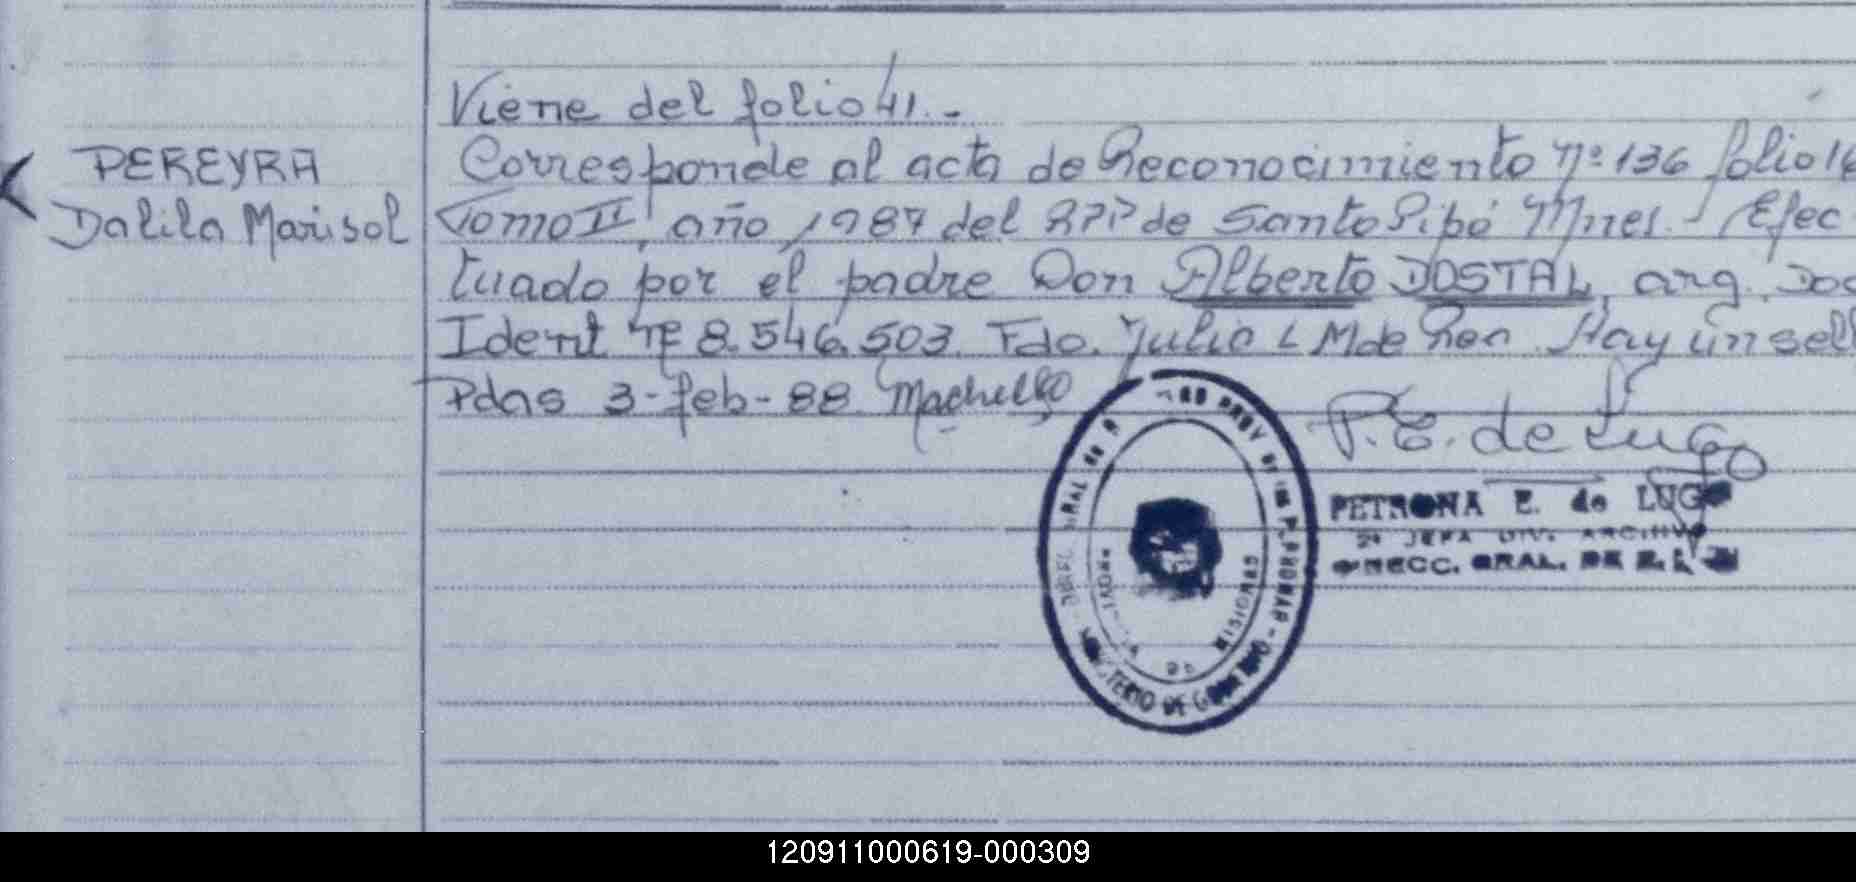 Viene del folio 41.-
PEREYRA
Dalila Marisol
Corresponde al acta de Reconocimiento nº 136 folio
Tomo II, año 1987 del RPP de Santo Pipó Mnes. Efec-
tuado por el padre Don Alberto DOSTAL, arg. Doc
Ident nº 8.546.503. Fdo. Julio L M de Hay un sell
Pdas 3-feb-88
P. E. de Lugo
PETRONA E. de LUGO
JEFA DIV. ARCHIVO
DIRECC. GRAL. DE
MINISTERIO DE GOBIERNO
MISIONES
120911000619-000309